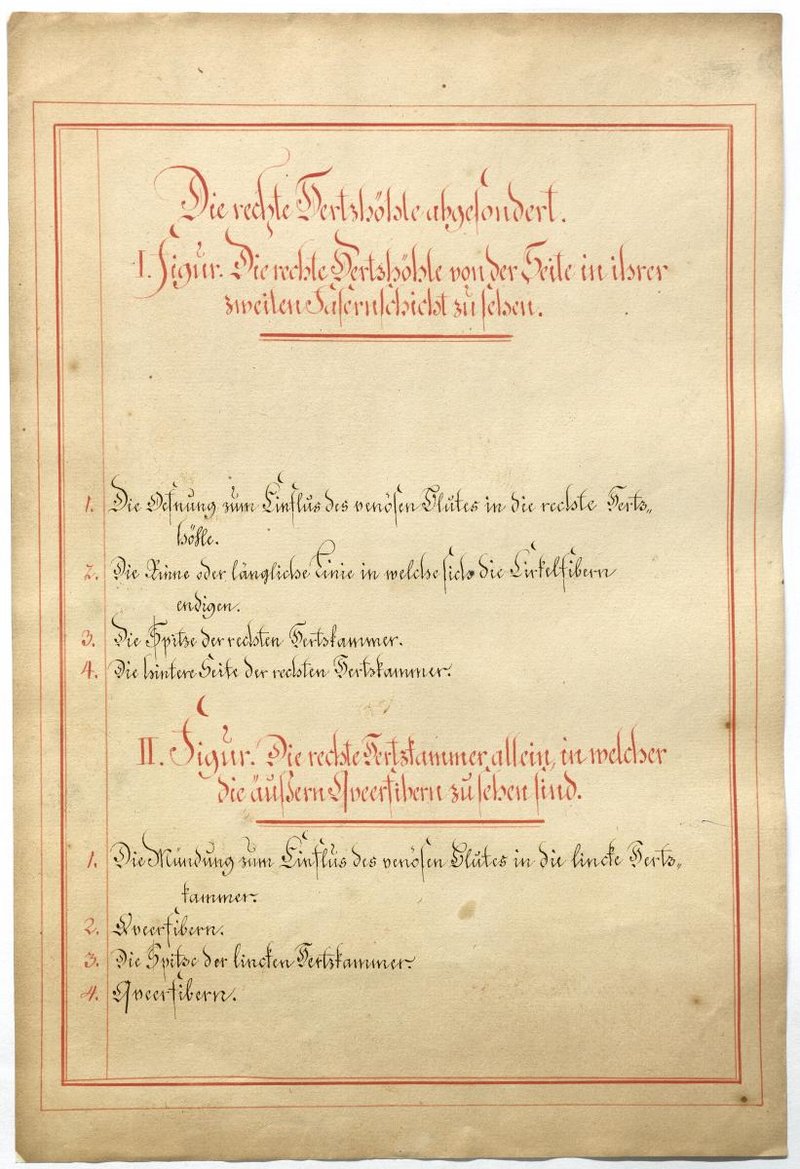 Die rechte Hertzhöhle abgesondert.
I. Figur. Die rechte Hertzhöhle von der Seite in ihrer
zweiten Fasernschicht zu sehen.
1. Die Oefnung zum Einflus des venösen Blutes in die rechte Hertz„
höhle.
2. Die Rinne oder längliche Linie in welche sich die Cirkelfibern
endigen.
3. Die Spitze der rechten Hertzkammer.
4. Die hintere Seite der rechten Hertzkammer.
II. Figur. Die rechte Hertzkammer allein, in welcher
die äußern Qveerfibern zu sehen sind.
1. Die Mündung zum Einflus des venösen Blutes in die lincke Hertz„
kammer.
2. Qveerfibern.
3. Die Spitze der lincken Hertzkammer.
4. Qveerfibern.